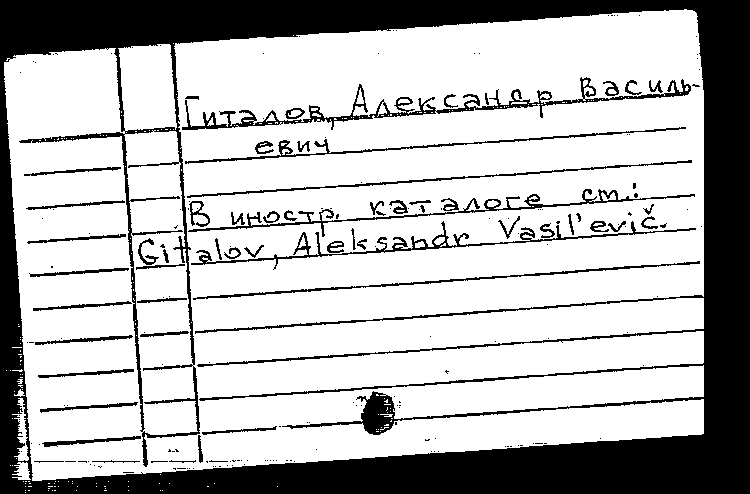 Гиталов, Александр Василь-
евич
В иностр. каталоге см.:
Gitalov, Aleksandr Vasil'evič.